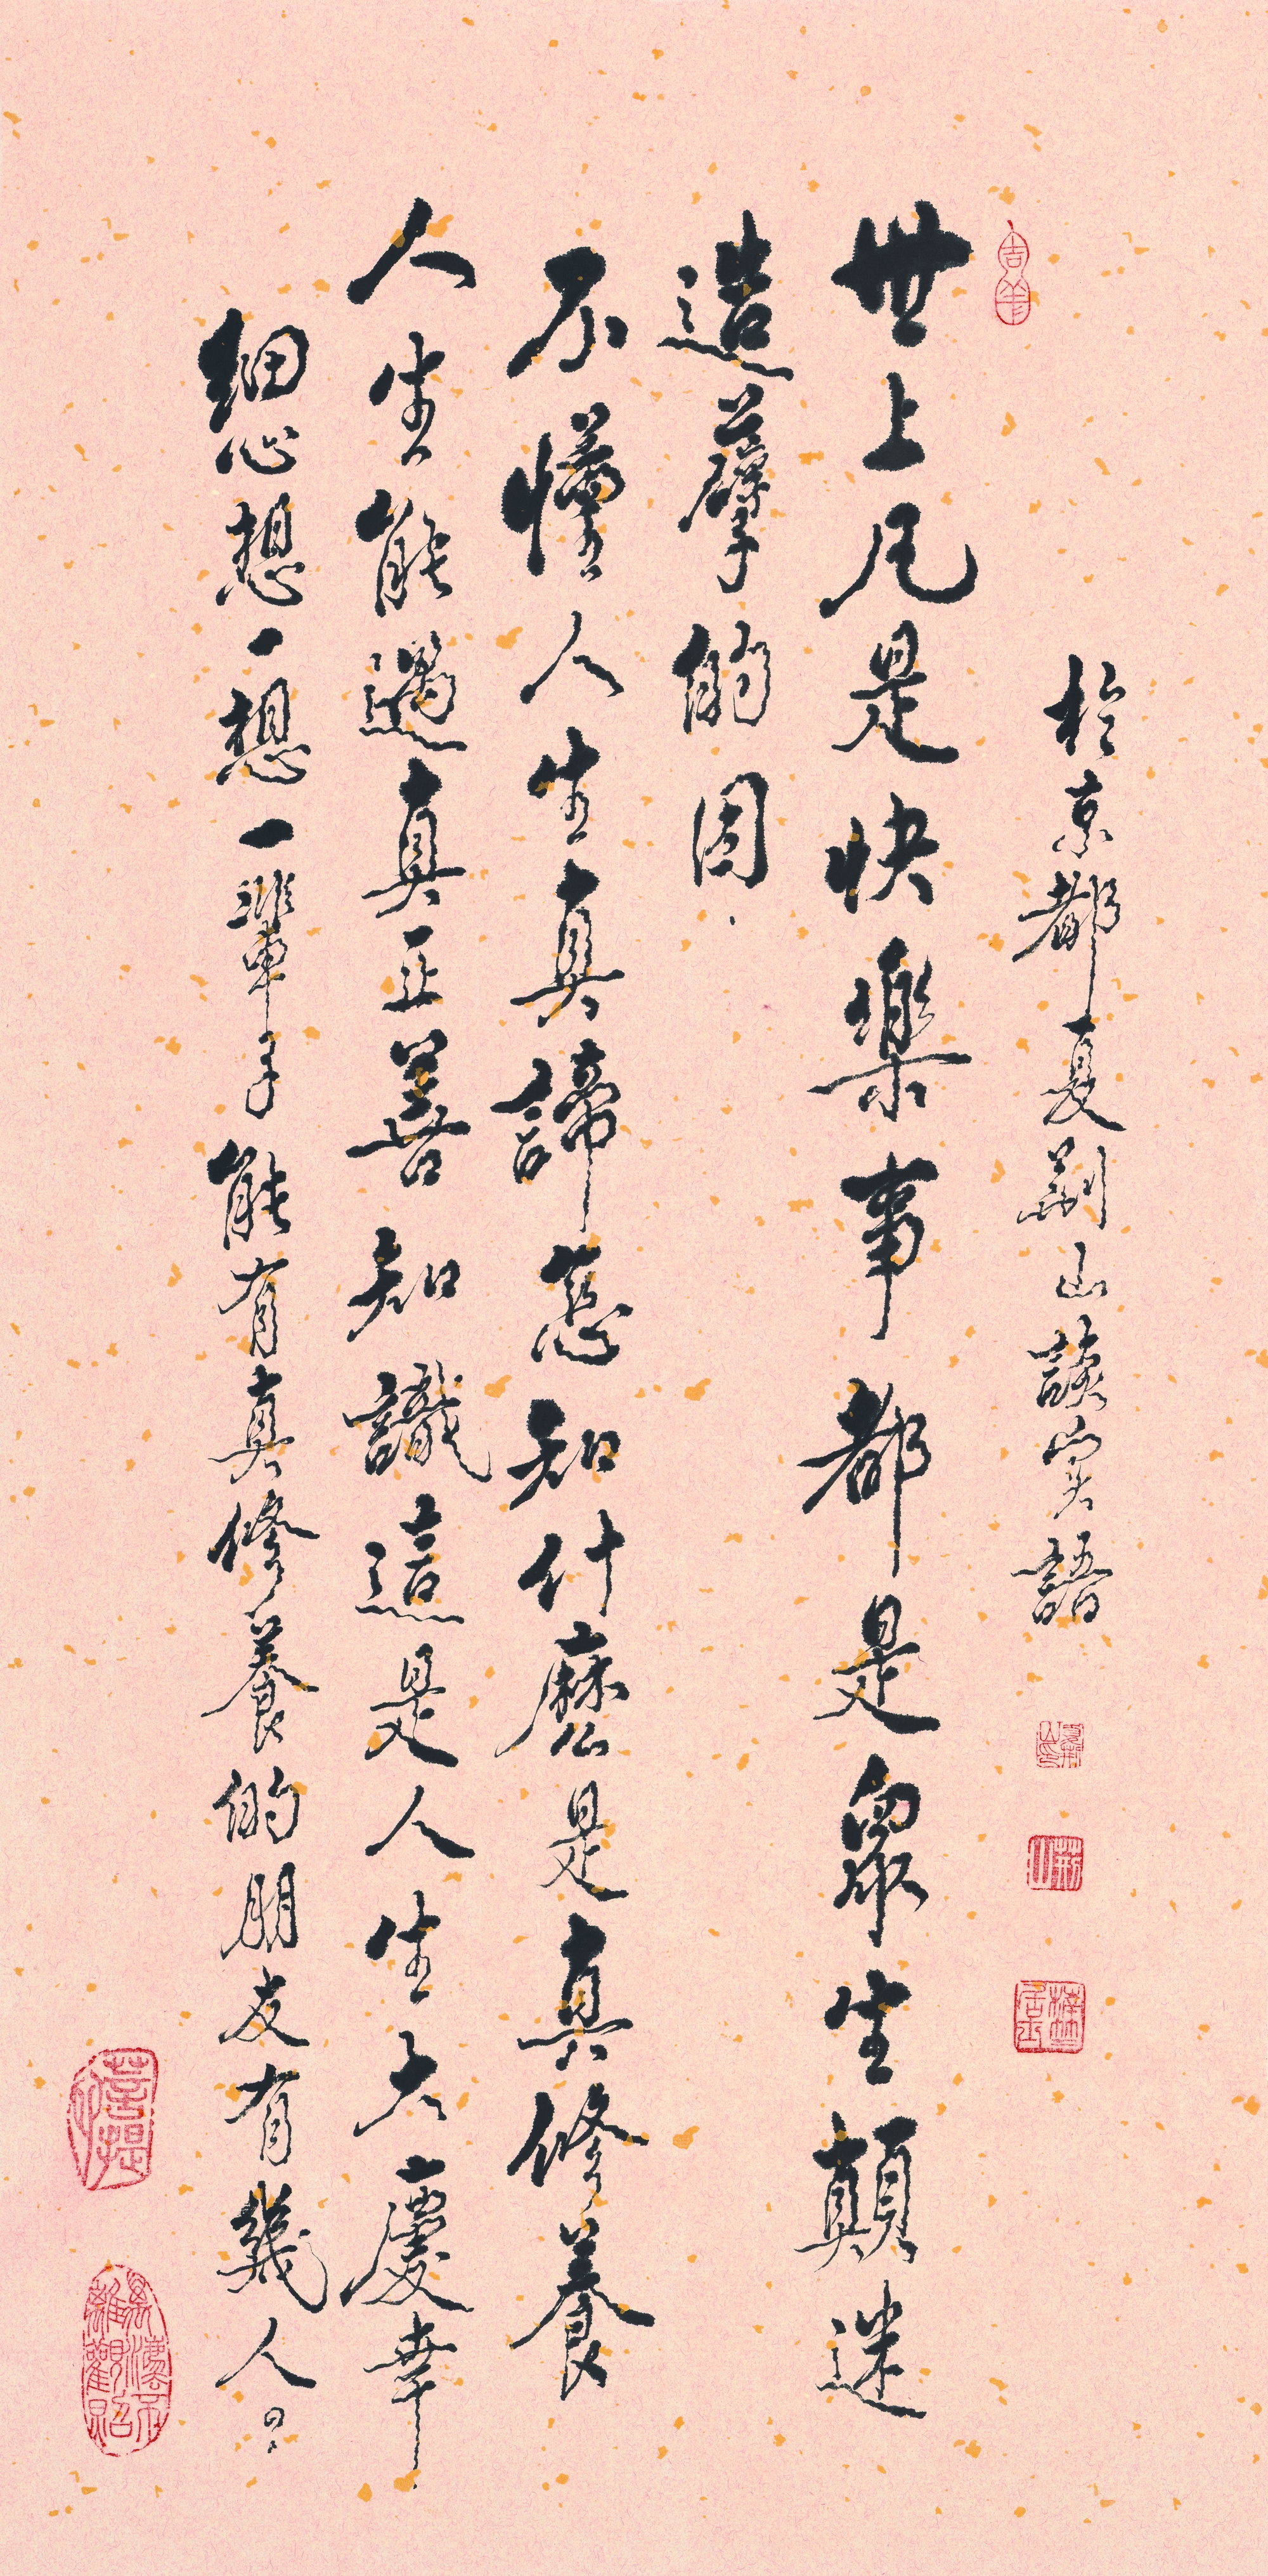 於京都夏荊山談實語
世上凡是快樂事都是衆生顛迷
造孽的因.
不懂人生真諦怎知什麼是真修養
人生能遇真正善知識這是人生大慶幸
細心想一想一輩子能有真修養的朋友有幾人?
吉羊
荊山
菩提